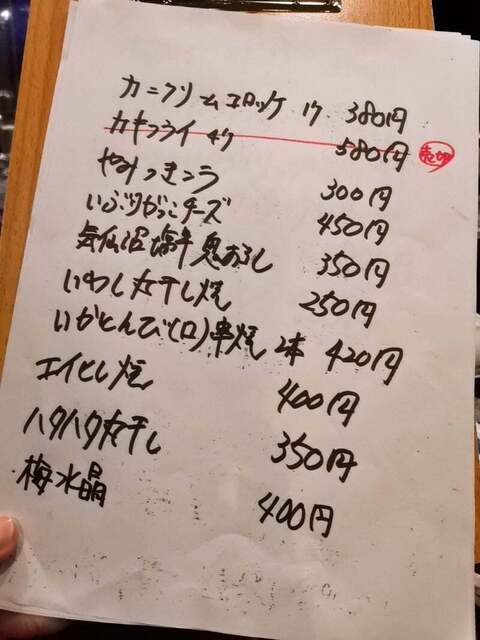 カニクリームコロッケ 1ケ 380円
カキフライ 4ケ 580円 売切
やみつきラ 300円
いぶりがっこチーズ 450円
気仙沼塩辛 鬼おろし 350円
いわし丸干し焼 250円
いかとんび(口)串焼 2本 420円
エイヒレ焼 400円
ハタハタ丸干し 350円
梅水晶 400円